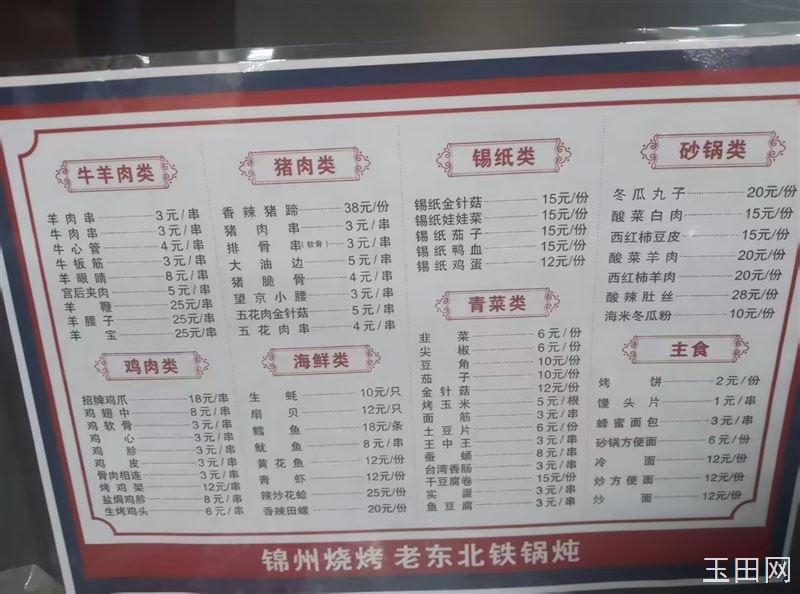 牛羊肉类
羊肉串 3元/串
牛肉串 3元/串
牛心管 4元/串
牛板筋 3元/串
羊眼睛 8元/串
宫后夹肉 5元/串
羊鞭 25元/串
羊腰子 25元/串
羊宝 25元/串
鸡肉类
招牌鸡爪 18元/串
鸡翅中 8元/串
鸡软骨 3元/串
鸡心 3元/串
鸡胗 3元/串
鸡皮 3元/串
骨肉相连 3元/串
烤鸡架 12元/串
盐焗鸡胗 8元/串
生烤鸡头 6元/串
猪肉类
香辣猪蹄 38元/份
猪肉串 3元/串
排骨串(软骨) 3元/串
大油边 5元/串
猪脆骨 4元/串
望京小腰 3元/串
五花肉金针菇 5元/串
五花肉串 4元/串
海鲜类
生蚝 10元/只
扇贝 12元/只
鳕鱼 18元/条
鱿鱼 8元/串
黄花鱼 12元/份
青虾 12元/份
辣炒花蛤 25元/份
香辣田螺 20元/份
锡纸类
锡纸金针菇 15元/份
锡纸娃娃菜 15元/份
锡纸茄子 15元/份
锡纸鸭血 15元/份
锡纸鸡蛋 12元/份
青菜类
韭菜 6元/份
尖椒 6元/份
豆角 10元/份
茄子 10元/份
金针菇 12元/份
烤玉米 5元/根
面筋 3元/串
土豆片 6元/份
王中王 3元/串
蚕蛹 8元/串
台湾香肠 3元/串
干豆腐卷 15元/份
实蛋 3元/串
鱼豆腐 3元/串
砂锅类
冬瓜丸子 20元/份
酸菜白肉 15元/份
西红柿豆皮 15元/份
酸菜羊肉 20元/份
西红柿羊肉 20元/份
酸辣肚丝 28元/份
海米冬瓜粉 10元/份
主食
烤饼 2元/份
馒头片 1元/串
蜂蜜面包 3元/串
砂锅方便面 6元/份
冷面 12元/份
炒方便面 12元/份
炒面 12元/份
锦州烧烤 老东北铁锅炖
玉田网